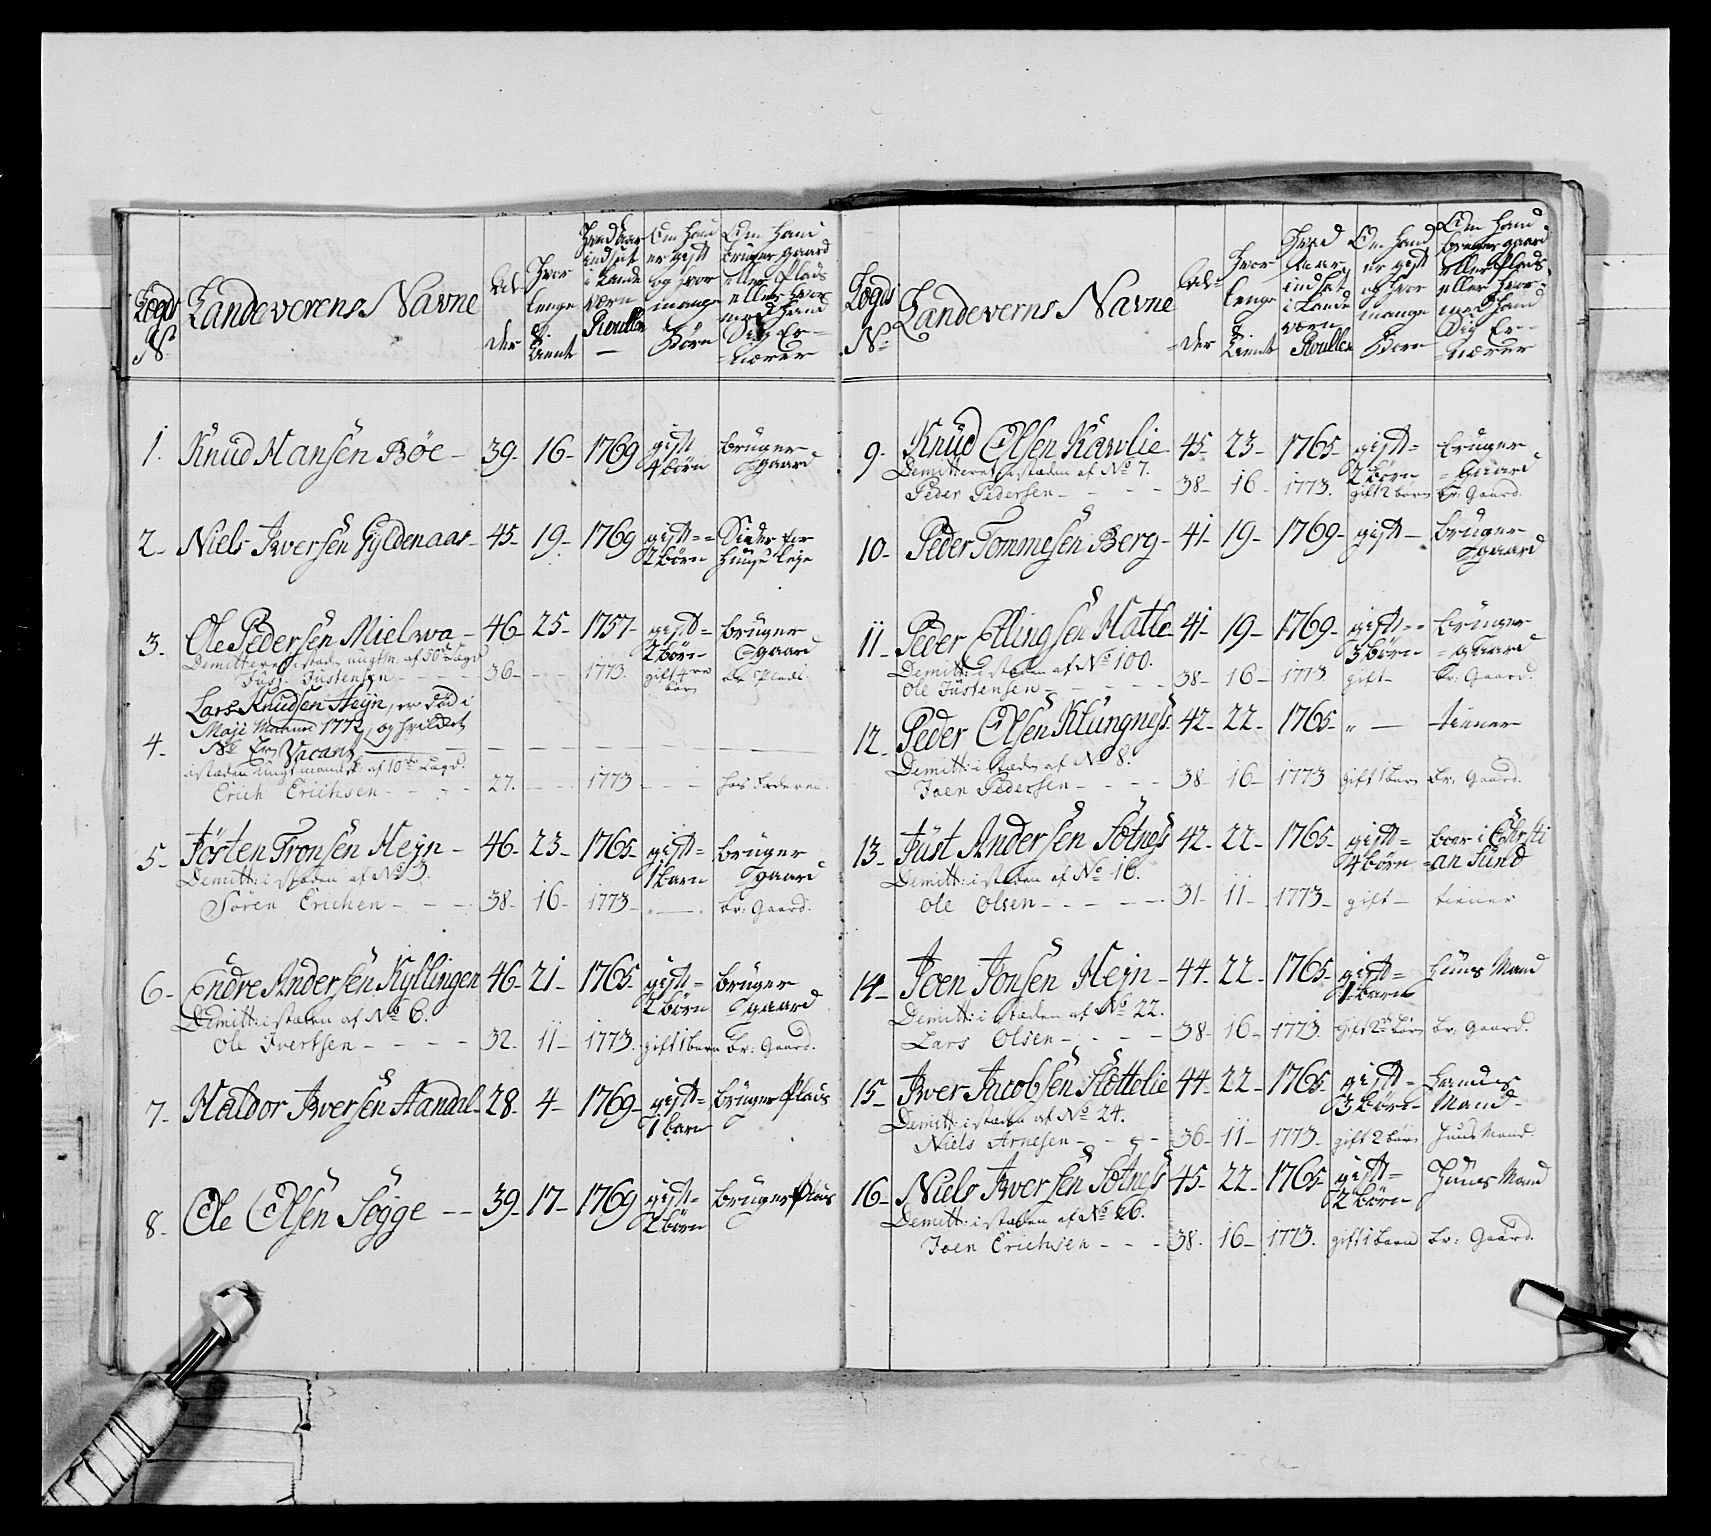 Lægds No
Landeverens Navne
Al-
der
Hvor
lenge
tient
Hvad aar
indsat
i Lande
værn
Roullen
Om Hand
er gift
og hvor
mange
Børn
Om Hand
bruger gaard
eller Plads
eller hvor
med Hand
Sig Er-
nærer
1. Knud Hansen Böe - 39- 16- 1769 gift 4 börn bruger gaard
2- Niels Iversen Gyldenaas- 45- 19- 1769 gift-- 2 börn Sider for Huuse leje
3- Ole Pedersen Mielwa - 46- 25- 1757- gift= 2 börn bruger gaard
Demitteret i stæden af 50de Lægd
Just Justensen - - - - 36- - - 1773. gift 4re börn br. Plads
4- Lars Knudsen Heÿn, er död i
Maji Maaned 1772, og hvilket
No Er Vacant
i stæden af 10de Lægd.
Erich Erichsen - - - - 27. - - 1773 - - - hos Foderen.
5- Jösten Tronsen Hejn - 46- 23- 1765- gift= 1 barn bruger gaard
Demitt: i stæden af No 3.
Sören Erichen - - - 38- 16- 1773- br: Gaard.
6- Endre Andersen Kyllingen 46- 21- 1765- gift= 2 börn bruger gaard
Demitt: i stæden af No 6.
Ole Ivertsen - - - - 32. 11- 1773. gift 1 barn br: Gaard.
7- Haldor Iversen Aandal- 28- 4- 1769- gift= 1 barn bruger Plads
8- Ole Olsen Sögge -- 39- 17- 1769 gift= 2 börn bruger Plads
Lægds No
Landeverns Navne
Al-
-der
Hvor
lenge
tient
Hvad
aar
indsat
i Lande
værn
Roullen
Om Hand
er gift
og hvor
mange
Börn
Om Hand
bruger gaard
eller Plads
eller hvor-
med Hand
Sig Er-
-nærer
9- Knud Olsen Kawlie 45- 23- 1765- gift= 2 börn bruger Gaard
Demitteret i stæden af No 7.
Peder Pedersen - - - - 38- 16- 1773. gift 2 barn br: Gaard.
10- Peder Tommesen Berg- 41- 19- 1769- gift- bruger gaard
11- Peder Ellingsen Hatle 41- 19- 1769- gift-- 3 börn bruger gaard
Demitt: i stæden af No 100.
Ole Justensen - - - - 38- 16- 1773 gift- br: Gaard.
12- Peder Olsen Klungness 42- 22- 1765- „ - tiener
Demitt: i stæden af No 8.
Joen Pedersen - - - - 38- 16- 1773 gift 1 barn br: Gaard.
13- Just Andersen Sötness 42- 22- 1765- gift= 4 börn boer i Christi
=an Sund
Demitt: i stæden af No 16.
Ole Olsen - - - - - 31- 11- 1773- gift- tiener
14- Joen Jonsen Hejn - 44- 22- 1765- gift= 1 barn Huus Mand
Demitt: i stæden af No 22.
Lars Olsen - - - - 38- 16- 1773. gift 2 börn br: Gaard.
15- Iver Jacobsen Slottelie 44- 22- 1765 gift- 3 börn Mand-
Demitt: i stæden af No 24.
Niels Arnesen - - - - 36- 11- 1773- gift 2 börn Huus Mand.
16- Niels Iversen Sötness 45- 22- 1765- gift= 2 börn Huus Mand
Demitt: i stæden af No 26.
Joen Erichsen - - - 38- 16- 1773. gift 1 barn br: Gaard.